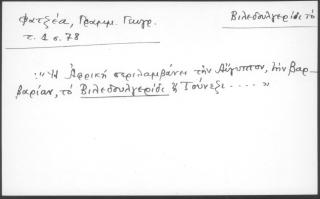 Φατζέα, Γραμμ. Γεωγρ.
Βιλεδουλγερίδε, τὸ
τ. 1 σ. 78
: " Ἡ Ἀφρικὴ περιλαμβάνει τὴν Αἴγυπτον, τὴν Βαρ-
βαρίαν, τὸ Βιλεδουλγερίδε ἢ Τούνεζι .... "